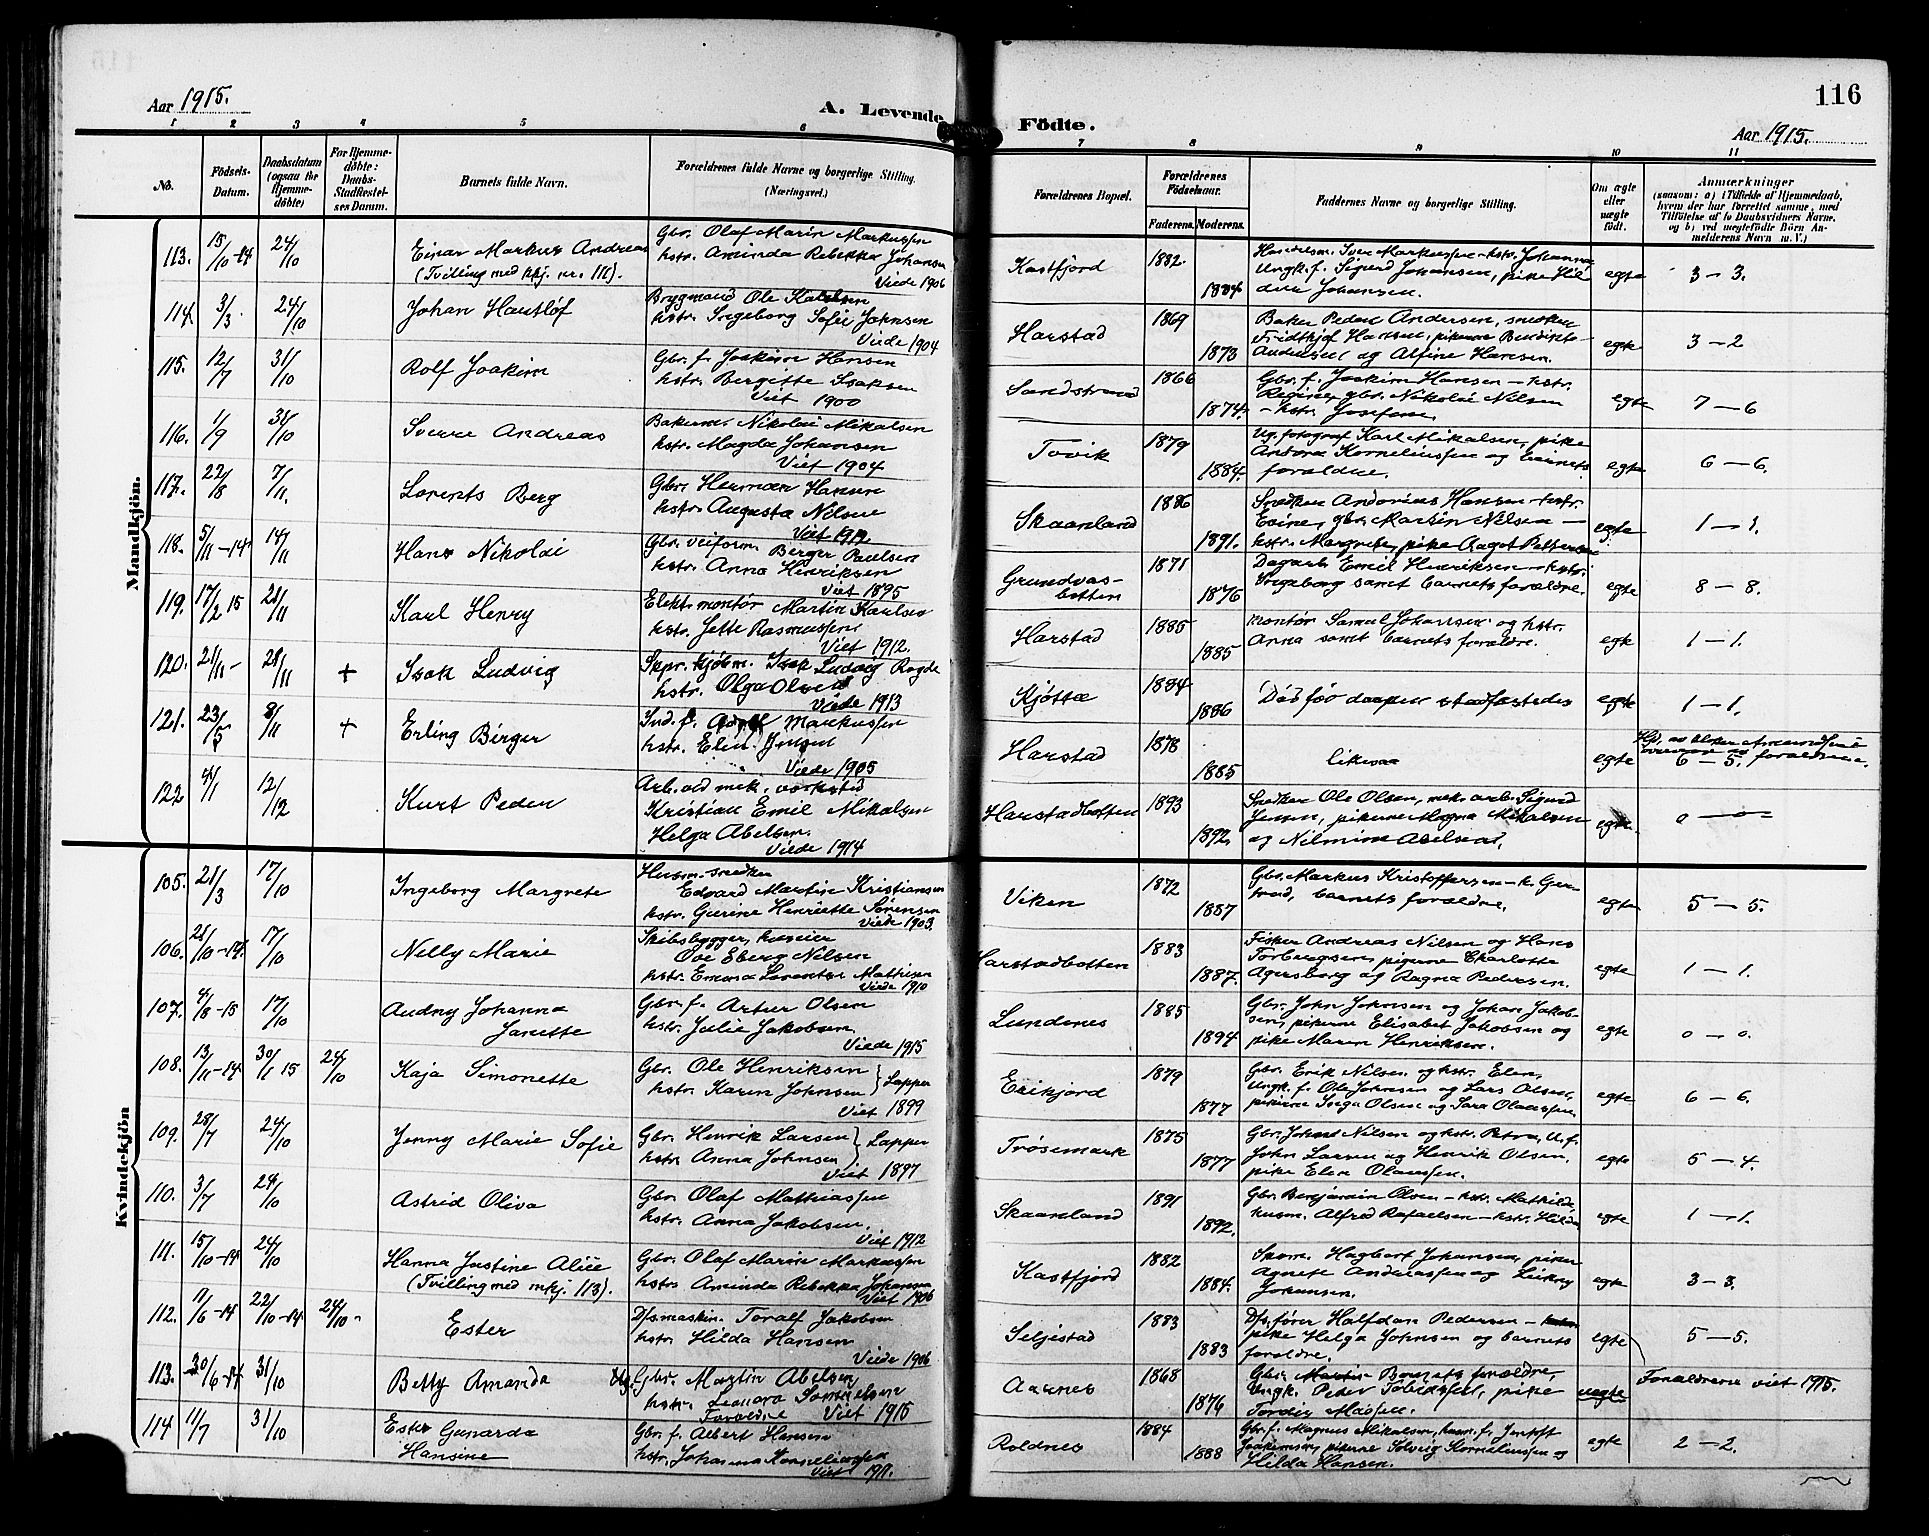 116
Aar 1915.
A. Levende
Födte.
Aar 1915.
1 2 3 4 5 6
7 8 9 10 11
No.
Födsels-
Datum.
Daabsdatum
(ogsaa for
Hjemme-
döbte)
For Hjemme-
döbte:
Daabs-
Stadfæstel-
ses Datum.
Barnets fulde Navn.
Forældrenes fulde Navne og borgerlige Stilling.
(Næringsvei.)
Forældrenes Bopæl.
Forældrenes
Födselsaar.
Faderens. Moderens.
Faddernes Navne og borgerlige Stilling.
Om ægte
eller
uægte
födt.
Anmærkninger
(saasom: a) i Tilfælde af Hjemmedaab,
hvem der har forrettet samme, med
Tilföielse af to Daabsvidners Navne,
og b) ved uegtefödte Börn An-
melderens Navn m. V.)
Mandkjön.
113. 15/10-14 24/10 Einar Markus Andreas
(Tvilling med kkj. nr. 111).
Gbr. Olaf Marin Markussen
hstr. Aminda Rebekka Johansen
Viede 1906
Kastfjord 1882. 1884
Ungk. f. Sigurd Johansen, pike Hil
Johansen.
egte 3-3.
114. 3/3. 24/10 Johan Hautlof
Brygmand Ole Karlsen
hstr. Ingeborg Sofie Johnsen
Viede 1904
Harstad 1869 1873
Baker Peder Andersen, snedker
Fridthjof Hansen, pikerne Bendikte
Andersen og Alfine Hansen.
egte 3-2
115. 12/7 31/10 Rolf Joakim
Gbr. f. Joakim Hansen
hstr. Bergitte Isaksen
Viet 1900
Sandstrand 1866 1874.
Gbr. f. Joakim Hansen - hstr.
Regine, gbr. Nikolai Nilsen
- hstr. Josefine.
egte 7-6
116. 1/9 31/10 Sverre Andreas
Bakerm. Nikolai Mikalsen
hstr. Magda Johansen
Viet 1904
Tovik 1879 1884.
Ug. fotograf Karl Mikalsen, pike
Andora Korneliussen og barnets
forældre.
egte 6-6.
117. 22/8 7/11. Lorents Berg
Gbr. Herman Hansen
hstr. Augusta Nilsen
Skaanland 1886 1891.
Snedker Andorias Hansen - hstr.
Evine, gbr. Martin Nilsen -
hstr. Margrete, pike Aagot Pettersen
egte 1-1.
118. 5/11-14 14/11 Hans Nikolai
Gbr. veiform. Berger Paulsen
hstr. Anna Henriksen
Viet 1895
Grundvas-
botten 1871 1876
Dagarb. Emil Henriksen - hstr.
Ingeborg samt barnets forældre.
egte 8-8.
119. 17/2 15 21/11 Karl Henry
Elekt. montör Martin Karlsen
hstr. Jette Rasmussen
Viet 1912.
Harstad 1885 1885
Montör Samuel Johansen og hstr.
Anna samt barnets forældre.
egte 1-1.
120. 21/11- 28/11 + Isak Ludvig
Skpr. kjöbm. Isak Ludvig Rogde
hstr. Olga Olsen
Viede 1913
Kjötta 1884 1886
Död för daapen stadfæstedes
egte 1-1.
121. 23/5 8/11 + Erling Birger
Ind. f. Adolf Markussen
hstr. Elen Jensen
Viede 1905
Harstad 1878 1885
likesaa
egte 6-5.
122 4/1 12/12 Kurt Peder
Arb. ved mek. verksted
Kristian Emil Mikalsen
Helga Abelsen.
Viede 1914
Harstadbotten 1893 1892.
Snedker Ole Olsen, mek. arb. Sigurd
Jensen, pikerne Magna Mikalsen
og Nilmine Abelsen.
egte. 0-0
Kvindekjön
105. 21/3 17/10 Ingeborg Margrete
Husm. snedker
Edvard Martin Kristiansen
hstr. Gurine Henriette Sörensen
Viede 1903.
Viken 1872 1887
Gbr. Markus Kristoffersen - h. Ger-
trud, barnets forældre.
egte 5-5.
106. 28/10-14. 17/10 Nelly Marie
Skibsbygger, huseier
Ove Eberg Nilsen
hstr. Emma Lorentse Mathisen
Viede 1910
Harstadbotten 1883 1887.
Fisker Andreas Nilsen og Hans
Torbergsen, pigerne Charlotte
Agersborg og Ragna Pedersen.
egte 1-1.
107. 4/8-15 17/10 Audny Johanna
Janette
Gbr. f. Artur Olsen
hstr. Julie Jakobsen
Viede 1915
Lundenes 1885 1894
Gbr. John Johnsen og Johan Jakob-
sen, pikerne Elisabet Jakobsen og
pike Maren Henriksen.
egte 0-0.
108. 13/11-14. 30/1 15 24/10 Kaja Simonette
Gbr. Ole Henriksen
hstr. Karen Johnsen } Lapper
Viet 1899
Erikjord 1879 1877
Gbr. Erik Nilsen og hstr. Elen,
Ungk. f. Ole Johnsen og Lars Olsen,
pikerne Inga Olsen og Sara Olaussen.
egte 6-6.
109. 28/7 24/10 Jenny Marie Sofie
Gbr. Henrik Larsen
hstr. Anna Johnsen } Lapper
Viet 1897
Trösemark 1875 1877
Gbr. Johan Nilsen og hstr. Petra, U. f.
John Larsen og Henrik Olsen,
pike Elen Olaussen.
egte 5-4.
110. 3/7 24/10 Astrid Oliva
Gbr. Olaf Mathiassen
hstr. Anna Jakobsen.
Viet 1912
Skaanland 1891 1892.
Gbr. Benjamin Olsen - hstr. Mathilde,
husm. Alfred Rafaelsen - hstr. Hilda
egte 1-1.
111. 15/10-14 24/10 Hanna Justine Alise
(Tvilling med mkj. 113).
Gbr. Olaf Marin Markussen
hstr. Aminda Rebekka Johansen
Viet 1906
Kastfjord 1882 1884.
Hagbart Johansen, piker
Agnete Andreassen og
Johansen.
egte 3-3.
112. 11/6-14 22/10-14 24/10- Ester
Dfs. maskin. Toralf Jakobsen
hstr. Hilda Hansen
Viede 1906
Seljestad 1883 1883
Dfs. förer Halfdan Pedersen -
pike Helga Johnsen og barnets
forældre.
egte 5-5.
113. 30/6-14 31/10 Betty Amanda
Ug. Gbr. Martin Abelsen
hstr. Leonora Samuelsen
Forældre Viet 1915
Aarnes 1868 1876
Gbr. Martin Barnets forældre,
Ungk. Peder Tobiassen, pike
Tordis Madsen.
uegte Forældrene viet 1915.
114 11/7 31/10 Ester Gunarda
Hansine
Gbr. f. Albert Hansen
hstr. Johanna Korneliussen
Viet 1911.
Roldnes 1884 1888
Gbr. f. Magnus Mikalsen, husm. f. Jentoft
Joakimsen, pikerne Solveig Korneliussen og
Hilda Hansen.
egte 2-2.